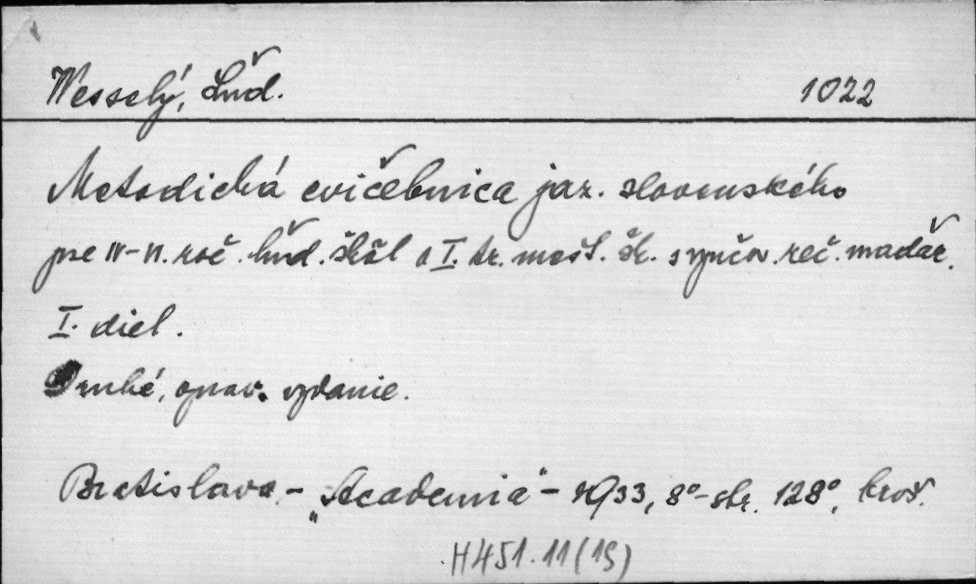 Wesselý, Ľuď. 1022
Metodická cvičebnica jaz. slovenského
pre IV-VI. roč. ľud. škôl a I. tr. mešť. šk. s vyučov. reč. maďar.
I. diel.
Druhé, oprav. vydanie.
Bratislava. - „Academia" - 1933, 8°-str. 128°, brož.
H451.11(19)